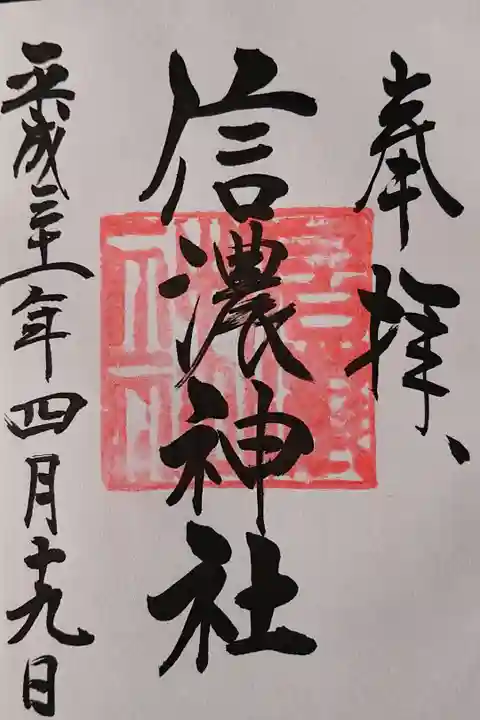 奉拝、
信濃神社
平成三十一年四月十九日